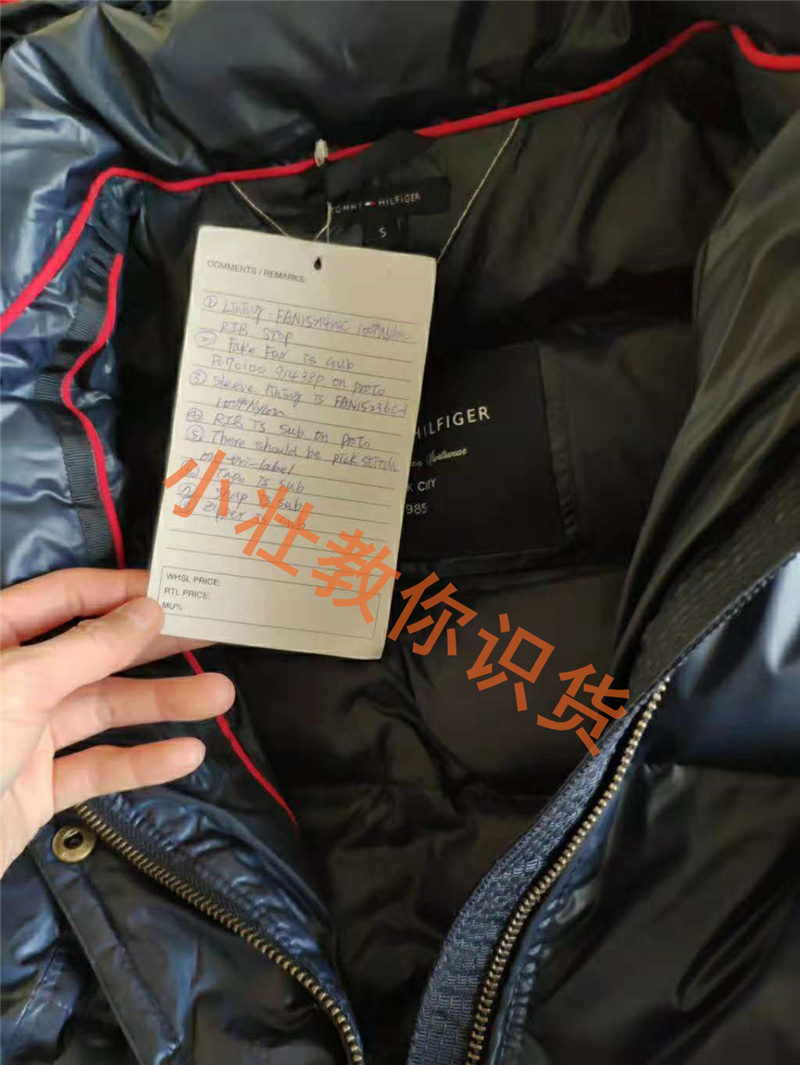 TOMMY HILFIGER
S
COMMENTS / REMARKS:
① Lining: FAN15714WC 100% Nylon
RIB STOP
② Fake Fax is sub
on proto
③ Sleeve lining is
100% Nylon
④ RIB is sub on proto
⑤ There should be pick stitch
on tri-label
Tape is sub
Snap is sub
Zipper is sub
WHSL PRICE:
RTL PRICE:
MU%
HILFIGER
Sportswear
K CITY
985
小壮教你识货